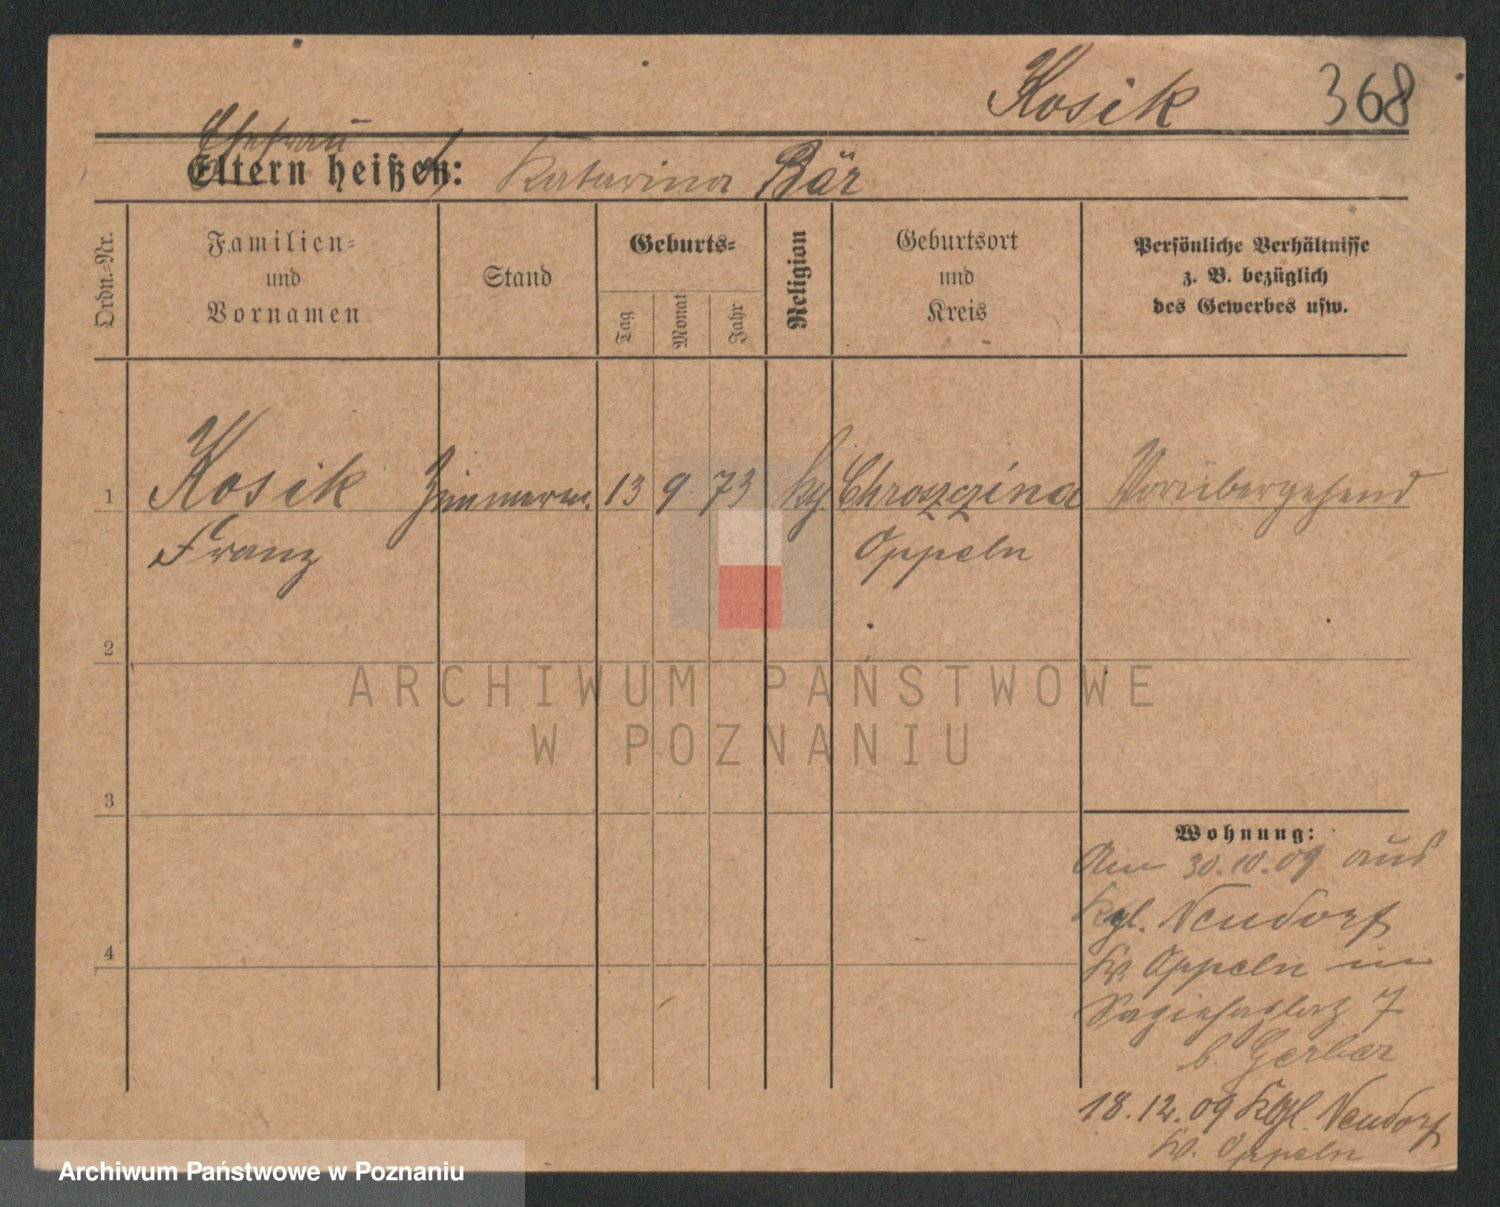 Kosik 368
Ehefrau
Eltern heißen: Katarina Bär
Ordn.=Nr.
Familien=
und
Vornamen
Stand
Geburts=
Tag
Monat
Jahr
Religion
Geburtsort
und
Kreis
Persönliche Verhältnisse
z. B. bezüglich
des Gewerbes usw.
1 Kosik Zimmerm. 13 9 73 Chroszczina Vorübergehend
Franz Oppeln
2
3
4
ARCHIWUM PAŃSTWOWE
W POZNANIU
Wohnung:
Am 30.10.09 aus
Kgl. Neudorf
Kr. Oppeln in
Sapiehaplatz 7
b. Gerber
18.12.09 Kgl. Neudorf
Kr. Oppeln
Archiwum Państwowe w Poznaniu